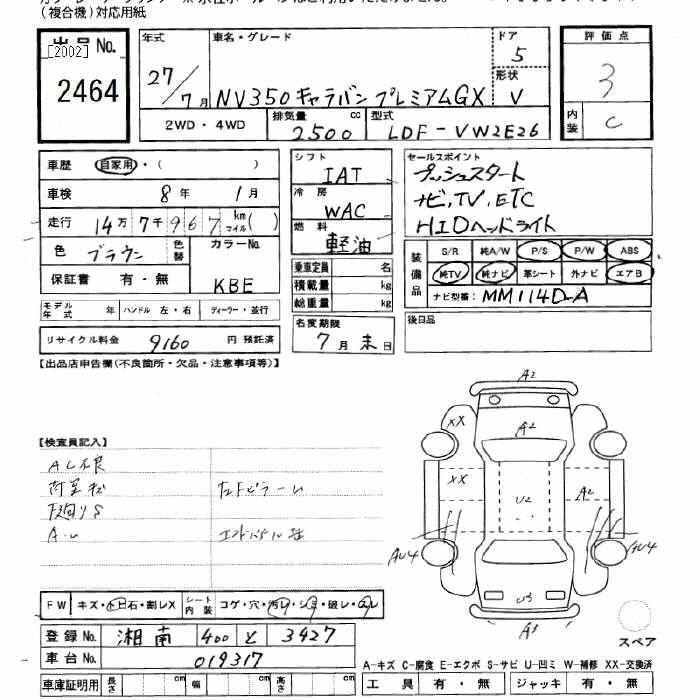 (複合機)対応用紙
出品No.
[2002]
2464
年式
27/7月
車名・グレード
NV350キャラバン プレミアムGX
ドア
5
形状
V
評価点
3
内装
C
2WD・4WD
排気量
2500 cc
型式
LDF-VW2E26
車歴 自家用・( )
車検 8年 1月
走行 14万7千967 km マイル( )
色 ブラウン 色替
カラーNo.
KBE
保証書 有・無
モデル年式 年 ハンドル 左・右 ディーラー・並行
リサイクル料金 9160 円 預託済
シフト
IAT
冷房
WAC
燃料
軽油
乗車定員 名
積載量 kg
総重量 kg
名変期限
7月末日
セールスポイント
プッシュスタート
ナビ,TV,ETC
HIDヘッドライト
装備品
S/R 純A/W P/S P/W ABS
純TV 純ナビ 革シート 外ナビ エアB
ナビ型番: MM114D-A
後日品
【出品店申告欄(不良箇所・欠品・注意事項等)】
【検査員記入】
AC不良
下廻りS
A・U
A2
XX
A2
XX
U2
A2
AU4
AU4
U3
A3
スペア
FW キズ・トビ石・割レX
シート内装 コゲ・穴・汚レ・シミ・破レ・スレ
登録No. 湘南 400 と 3427
車台No. 019317
車庫証明用 長さ cm 幅 cm 高さ cm
A-キズ C-腐食 E-エクボ S-サビ U-凹ミ W-補修 XX-交換済
工具 有・無 ジャッキ 有・無